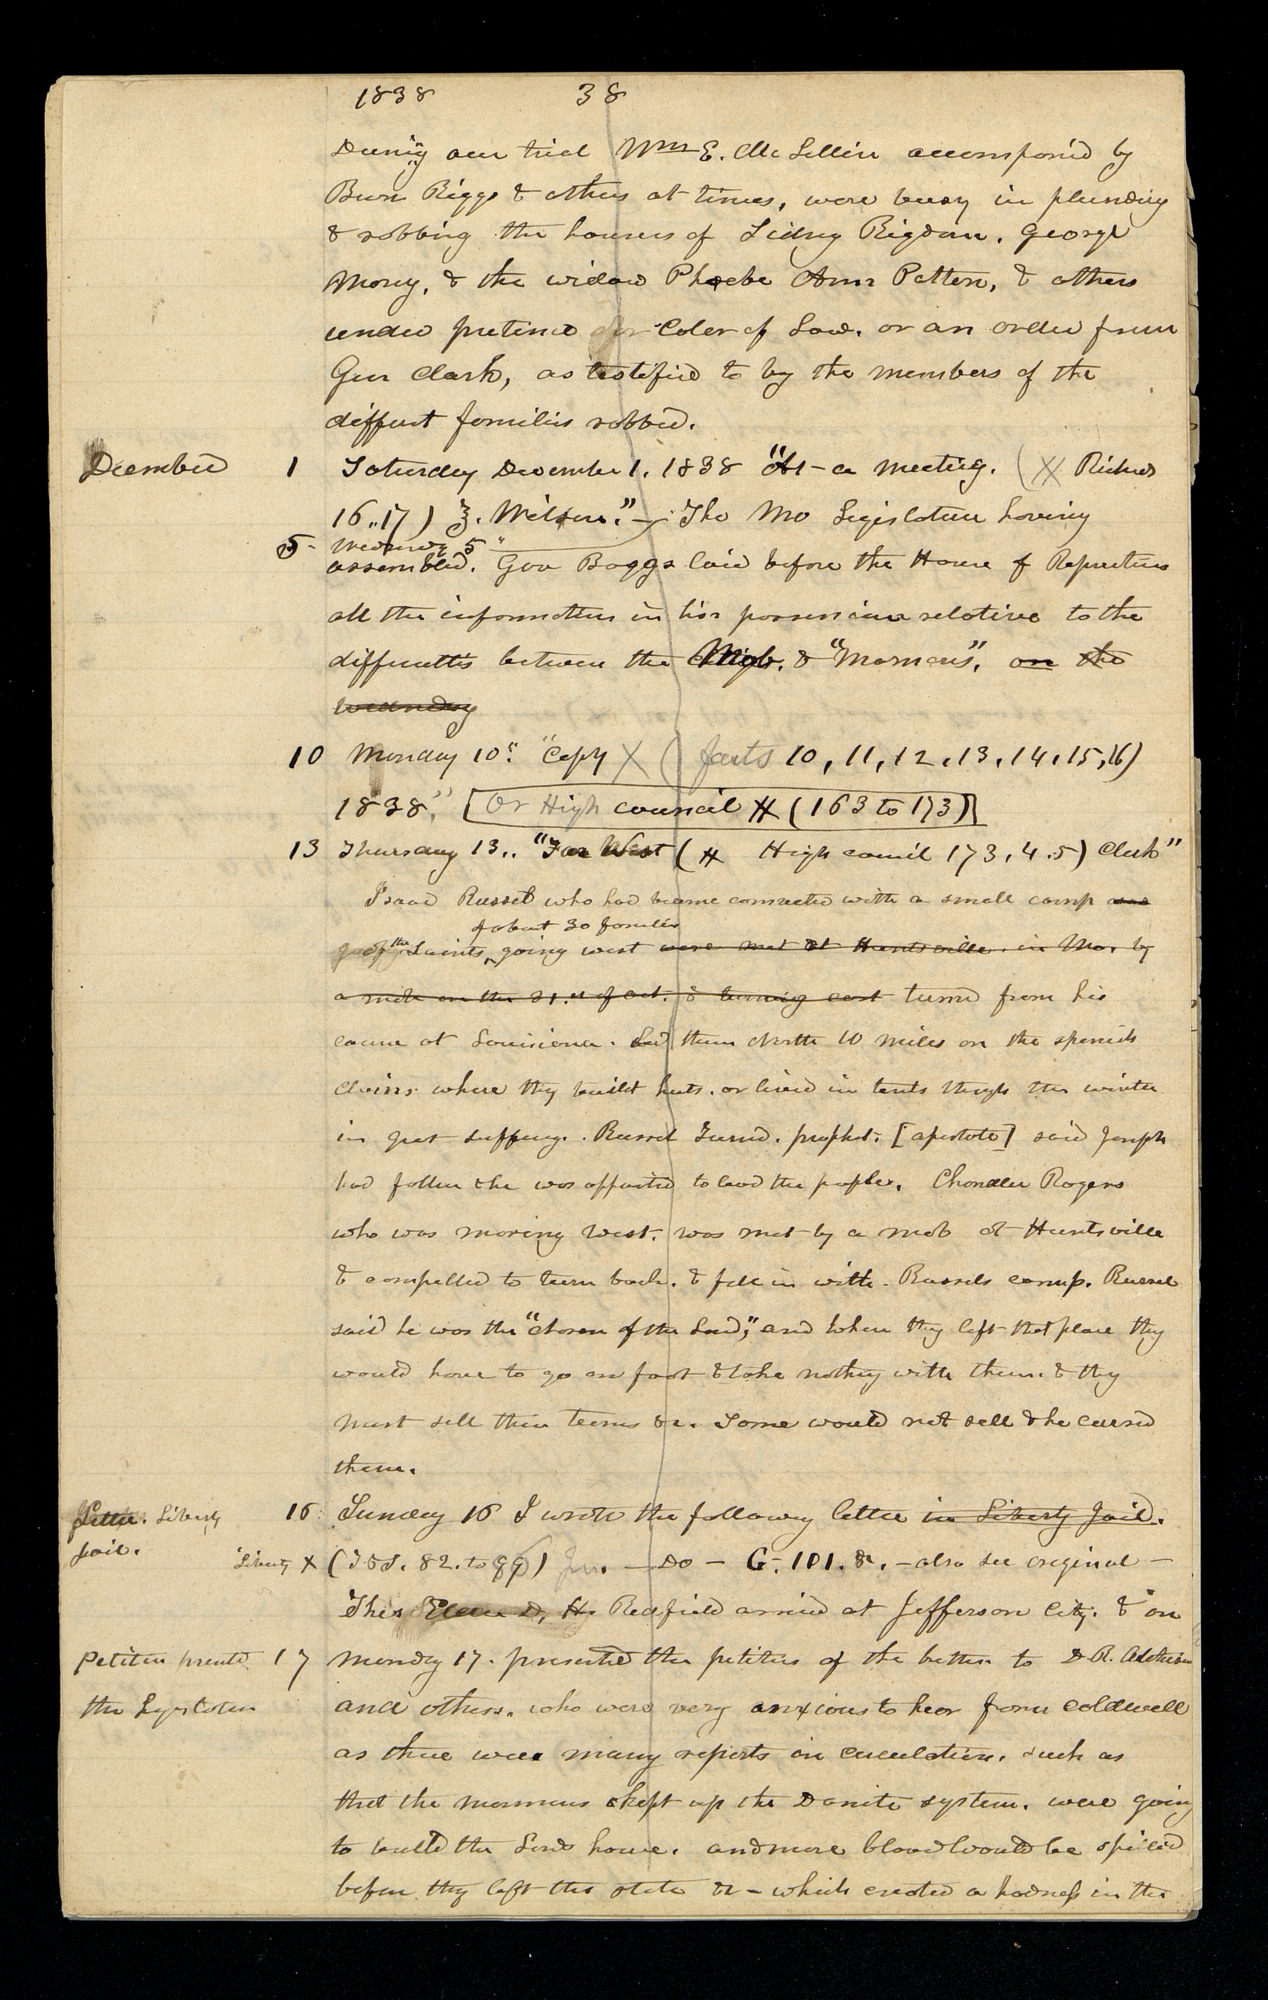 1838 38
During our trial Wm E. McLellin accompanied by
Burr Riggs & others at times, were busy in plundering
& robbing the houses of Sidney Rigdon, George
Morey, & the widow Phoebe Ann Patten, & others
under pretence or Color of Law. or an order from
Gen Clark, as testified to by the members of the
different families robbed.
December 1 Saturday December 1. 1838 "At a meeting. (X Richards
16,,17) Z. Wilson." – The Mo Legislature having
5 Wednesday 5"
assembled. Gov Boggs laid before the House of Representatives
all the information in his possession relative to the
difficulties between the Mob. & "Mormons", on the
wednesday
10 Monday 10" "Copy X (facts 10, 11, 12, 13, 14, 15, 16)
1838" [Or High council # (163 to 173)]
13 Thursday 13,, "Far West (# High council 173, 4. 5) Clerk"
Isaac Russel who had become connected with a small camp
of about 30 families
of the Saints, going west were met at Huntsville. in Mo. by
a mob on the 21.st of oct. & turning east turned from his
course at Louisiana. Led them North 10 miles on the spanish
claims where they built huts. or lived in tents through the winter
in great suffering. Russel Turned. prophet. [apostate] said Joseph
had fallen & he was appointed to lead the people. Chandler Rogers
who was moving west. was met by a mob at Huntsville
& compelled to turn back. & fell in with Russels camp. Russel
said he was the "chosen of the Lord," and when they left that place they
would have to go on foot & take nothing with them. & they
must sell their teams &c. Some would not sell & he cursed
them.
Letter. Liberty 16 Sunday 16 I wrote the following letter in Liberty Jail.
Jail. Liberty X (T&S. 82. to 86) – Do – C. 101. &. – also see original –
This Elder D, H, Redfield arrived at Jefferson City. & on
Petition presented 17 Monday 17. presented the petition of the brethren to D R. Atchison
the Legislature and others. who were very anxious to hear from Caldwell
as there were many reports in circulation. such as
that the mormons kept up the Danite system. were going
to build the Lords house. and more blood would be spilled
before they left the state &c – which created a hardness in the